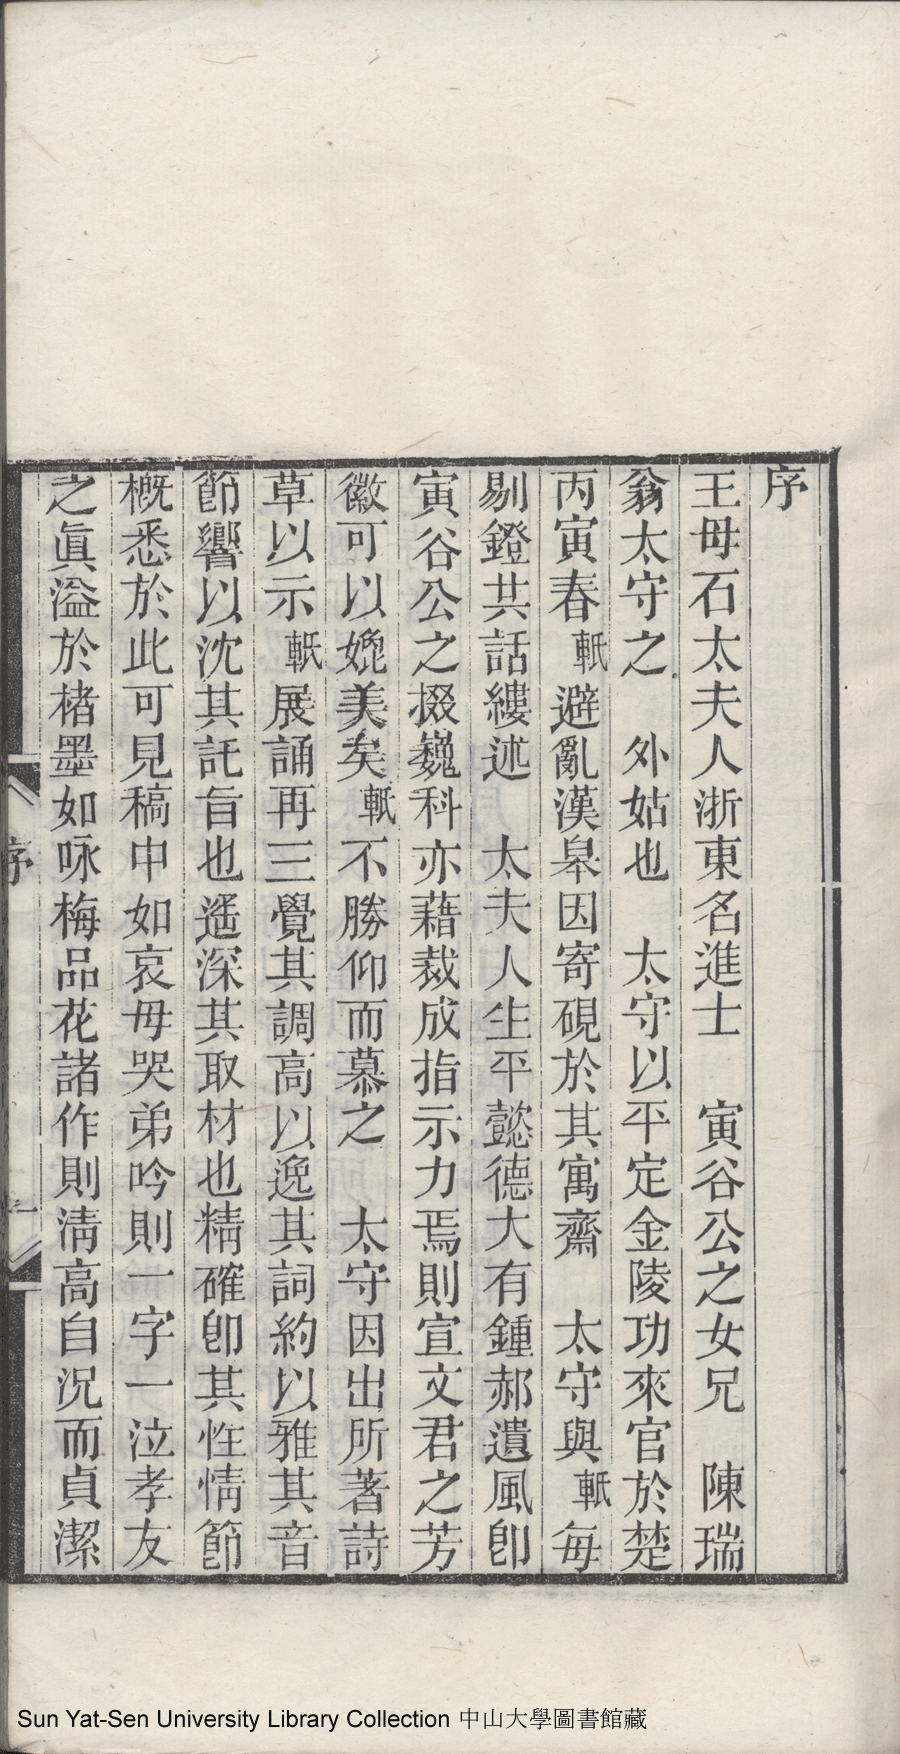 序
王母石太夫人浙東名進士　寅谷公之女兄　陳瑞
翁太守之　外姑也　太守以平定金陵功來官於楚
丙寅春軝避亂漢皋因寄硯於其寓齋　太守與軝每
剔鐙共話縷述　太夫人生平懿德大有鍾郝遺風卽
寅谷公之掇巍科亦藉裁成指示力焉則宣文君之芳
徽可以媲美矣軝不勝仰而慕之　太守因出所著詩
草以示軝展誦再三覺其調高以逸其詞約以雅其音
節響以沈其託旨也遥深其取材也精確卽其性情節
概悉於此可見稿中如哀母哭弟吟則一字一泣孝友
之眞溢於楮墨如咏梅品花諸作則淸高自況而貞潔
序
一
Sun Yat-Sen University Library Collection 中山大學圖書館藏